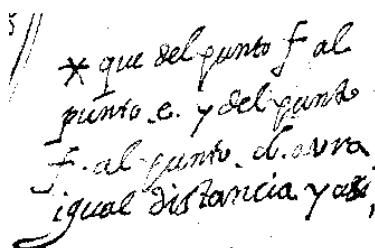 * que del punto f al
punto e. y del punto
f. al punto. d. avra
igual distancia y asi,